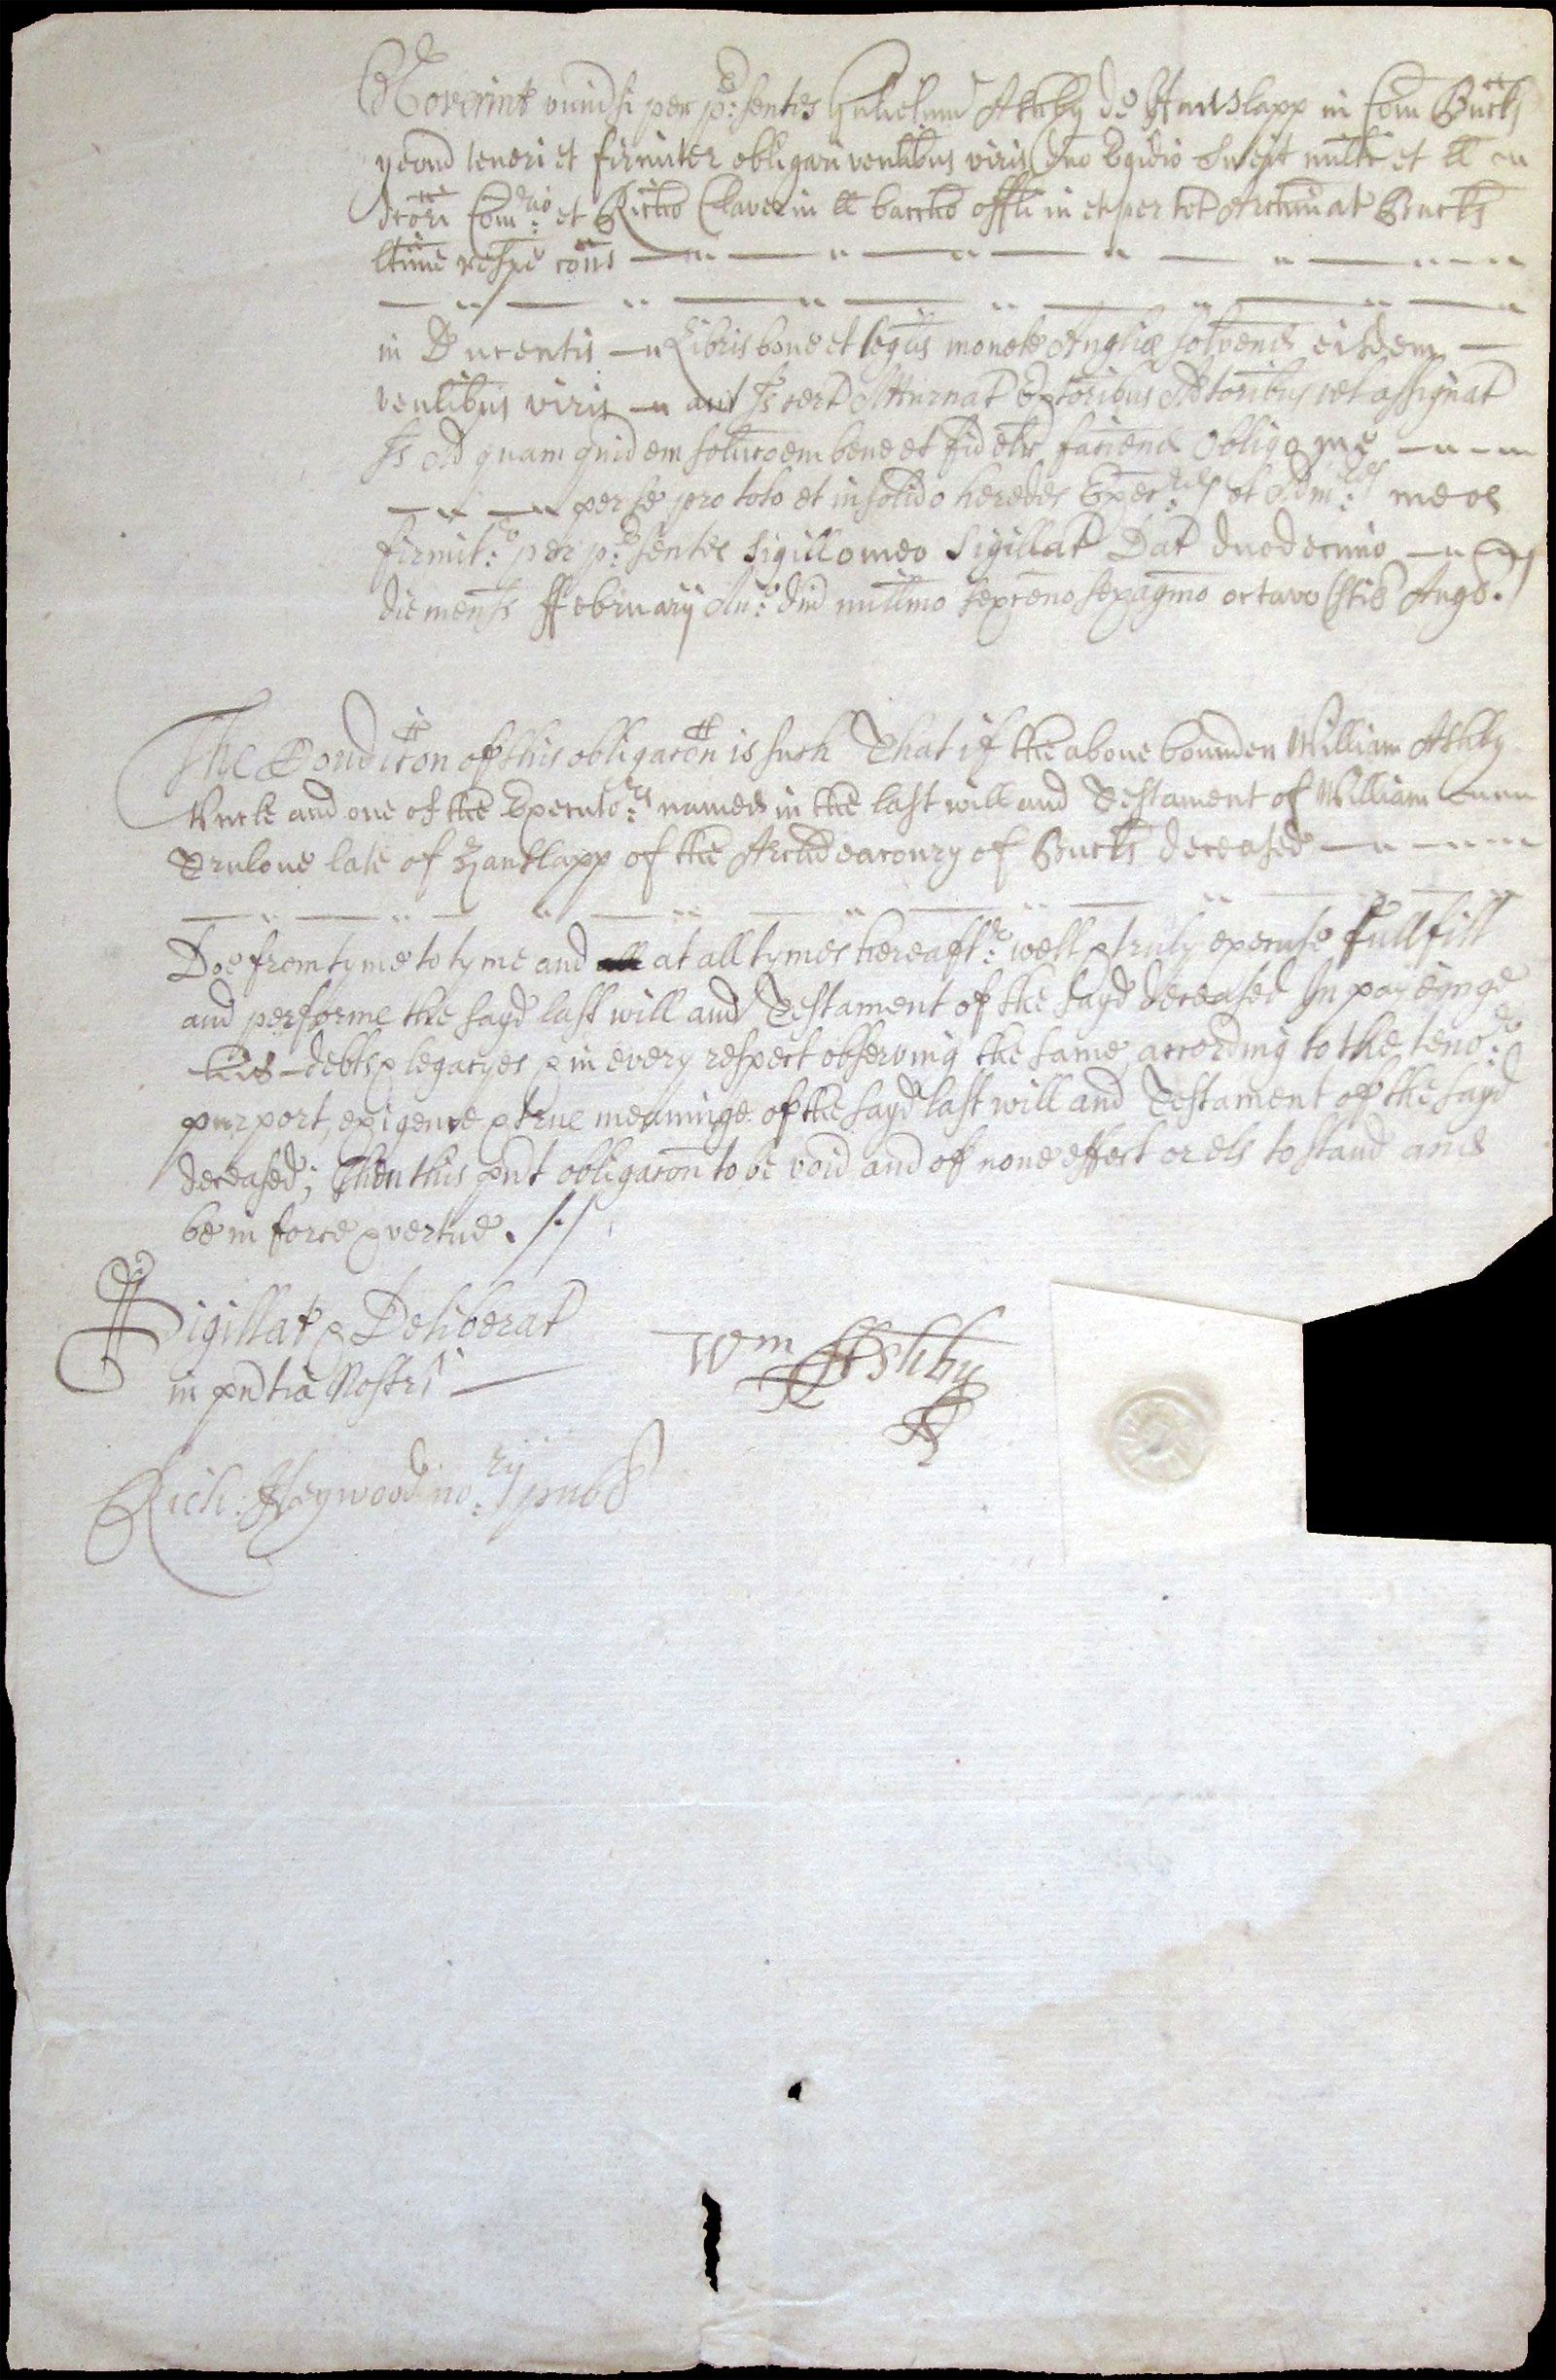 Noverint univsi per p:sentes Gulielmu Ashby de Hanslapp in Com Bucks
yeomd teneri et firmiter obligari venlibus viris Dno Egidio Sweit milti et ll
dcori Com:rio et Richo Claver in ll baccho offli in et per tot Archinat Bucks
ltime respe cons
in Ducentis Libris bone et legtis monete Anglie solvend eisdem
venlibus viris aut is cert Atturnat Extoribus Adtoribus vel assignat
is Ad quam quidem solucoem bene et fidelr faciend Obligo me
per se pro toto et in solido heredes Exec:res et Adm:res meos
firmit:r per p:sentes sigillo meo Sigillat Dat duodecimo
die mensis ffebruarij An:o dni millimo sexceno sexagmo octavo stie Angl.
The Condicon of this obligacon is such That if the above bounden William Ashby
Uncle and one of the Executo:rs named in the last will and Testament of William
Trulove late of Hanslapp of the Archdeaconry of Bucks deceased
Doe from tyme to tyme and at all tymes hereaft:r well & truly execute fullfill
and performe the sayd last will and Testament of the sayd deceased In payeinge
his debts & legacyes & in every respect observing the same according to the teno:r
purport, exigence & true meaninge of the sayd last will and Testament of the sayd
deceased; Then this pnt obligacon to be void and of none effect or els to stand and
be in force & vertue. //
Sigillat & Deliberat
in pntia Nostri
Wm Ashby
Rich: Heywood no:ry pub